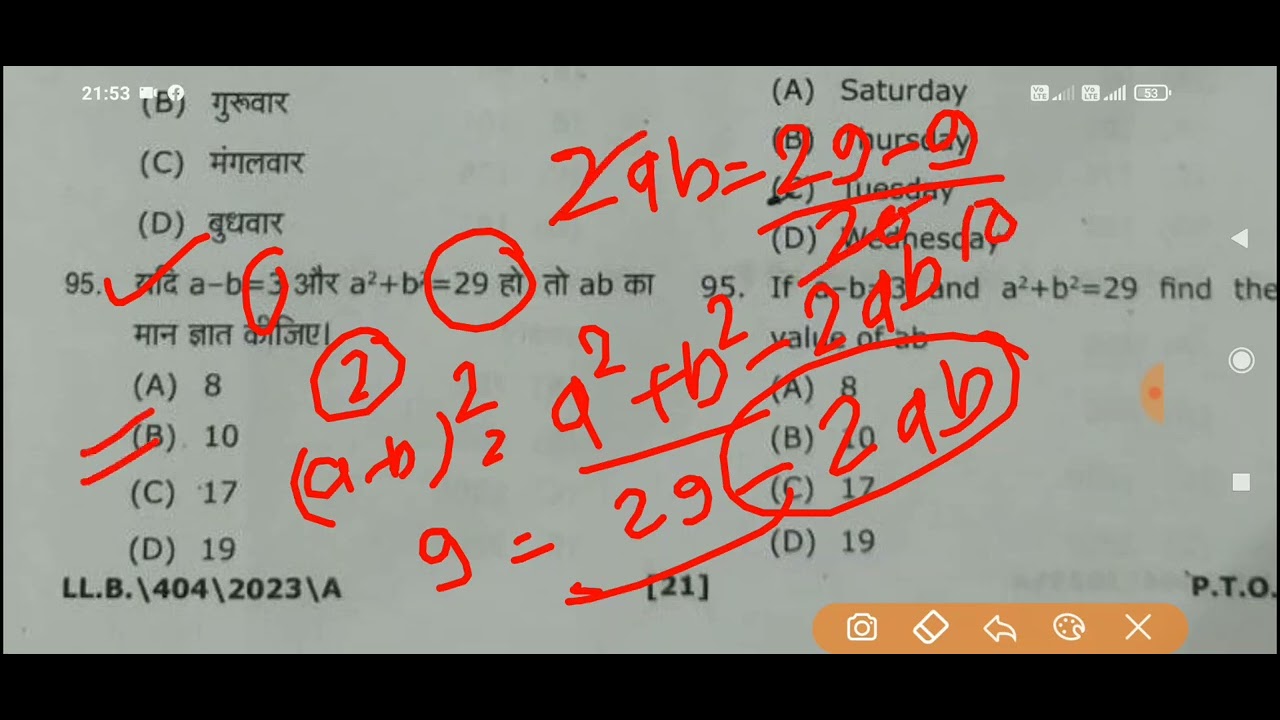 21:53
53
(B) गुरूवार
(C) मंगलवार
(D) बुधवार
95. यदि a-b=3 और a²+b²=29 हो तो ab का
मान ज्ञात कीजिए।
(A) 8
(B) 10
(C) 17
(D) 19
LL.B.\404\2023\A
(A) Saturday
(B) Thursday
(C) Tuesday
(D) Wednesday
95. If a-b=3 and a²+b²=29 find the
value of ab
(A) 8
(B) 10
(C) 17
(D) 19
[21]
P.T.O.
2ab=29-9
20 10
2
(a-b)² = a²+b²-2ab
9 = 29-2ab